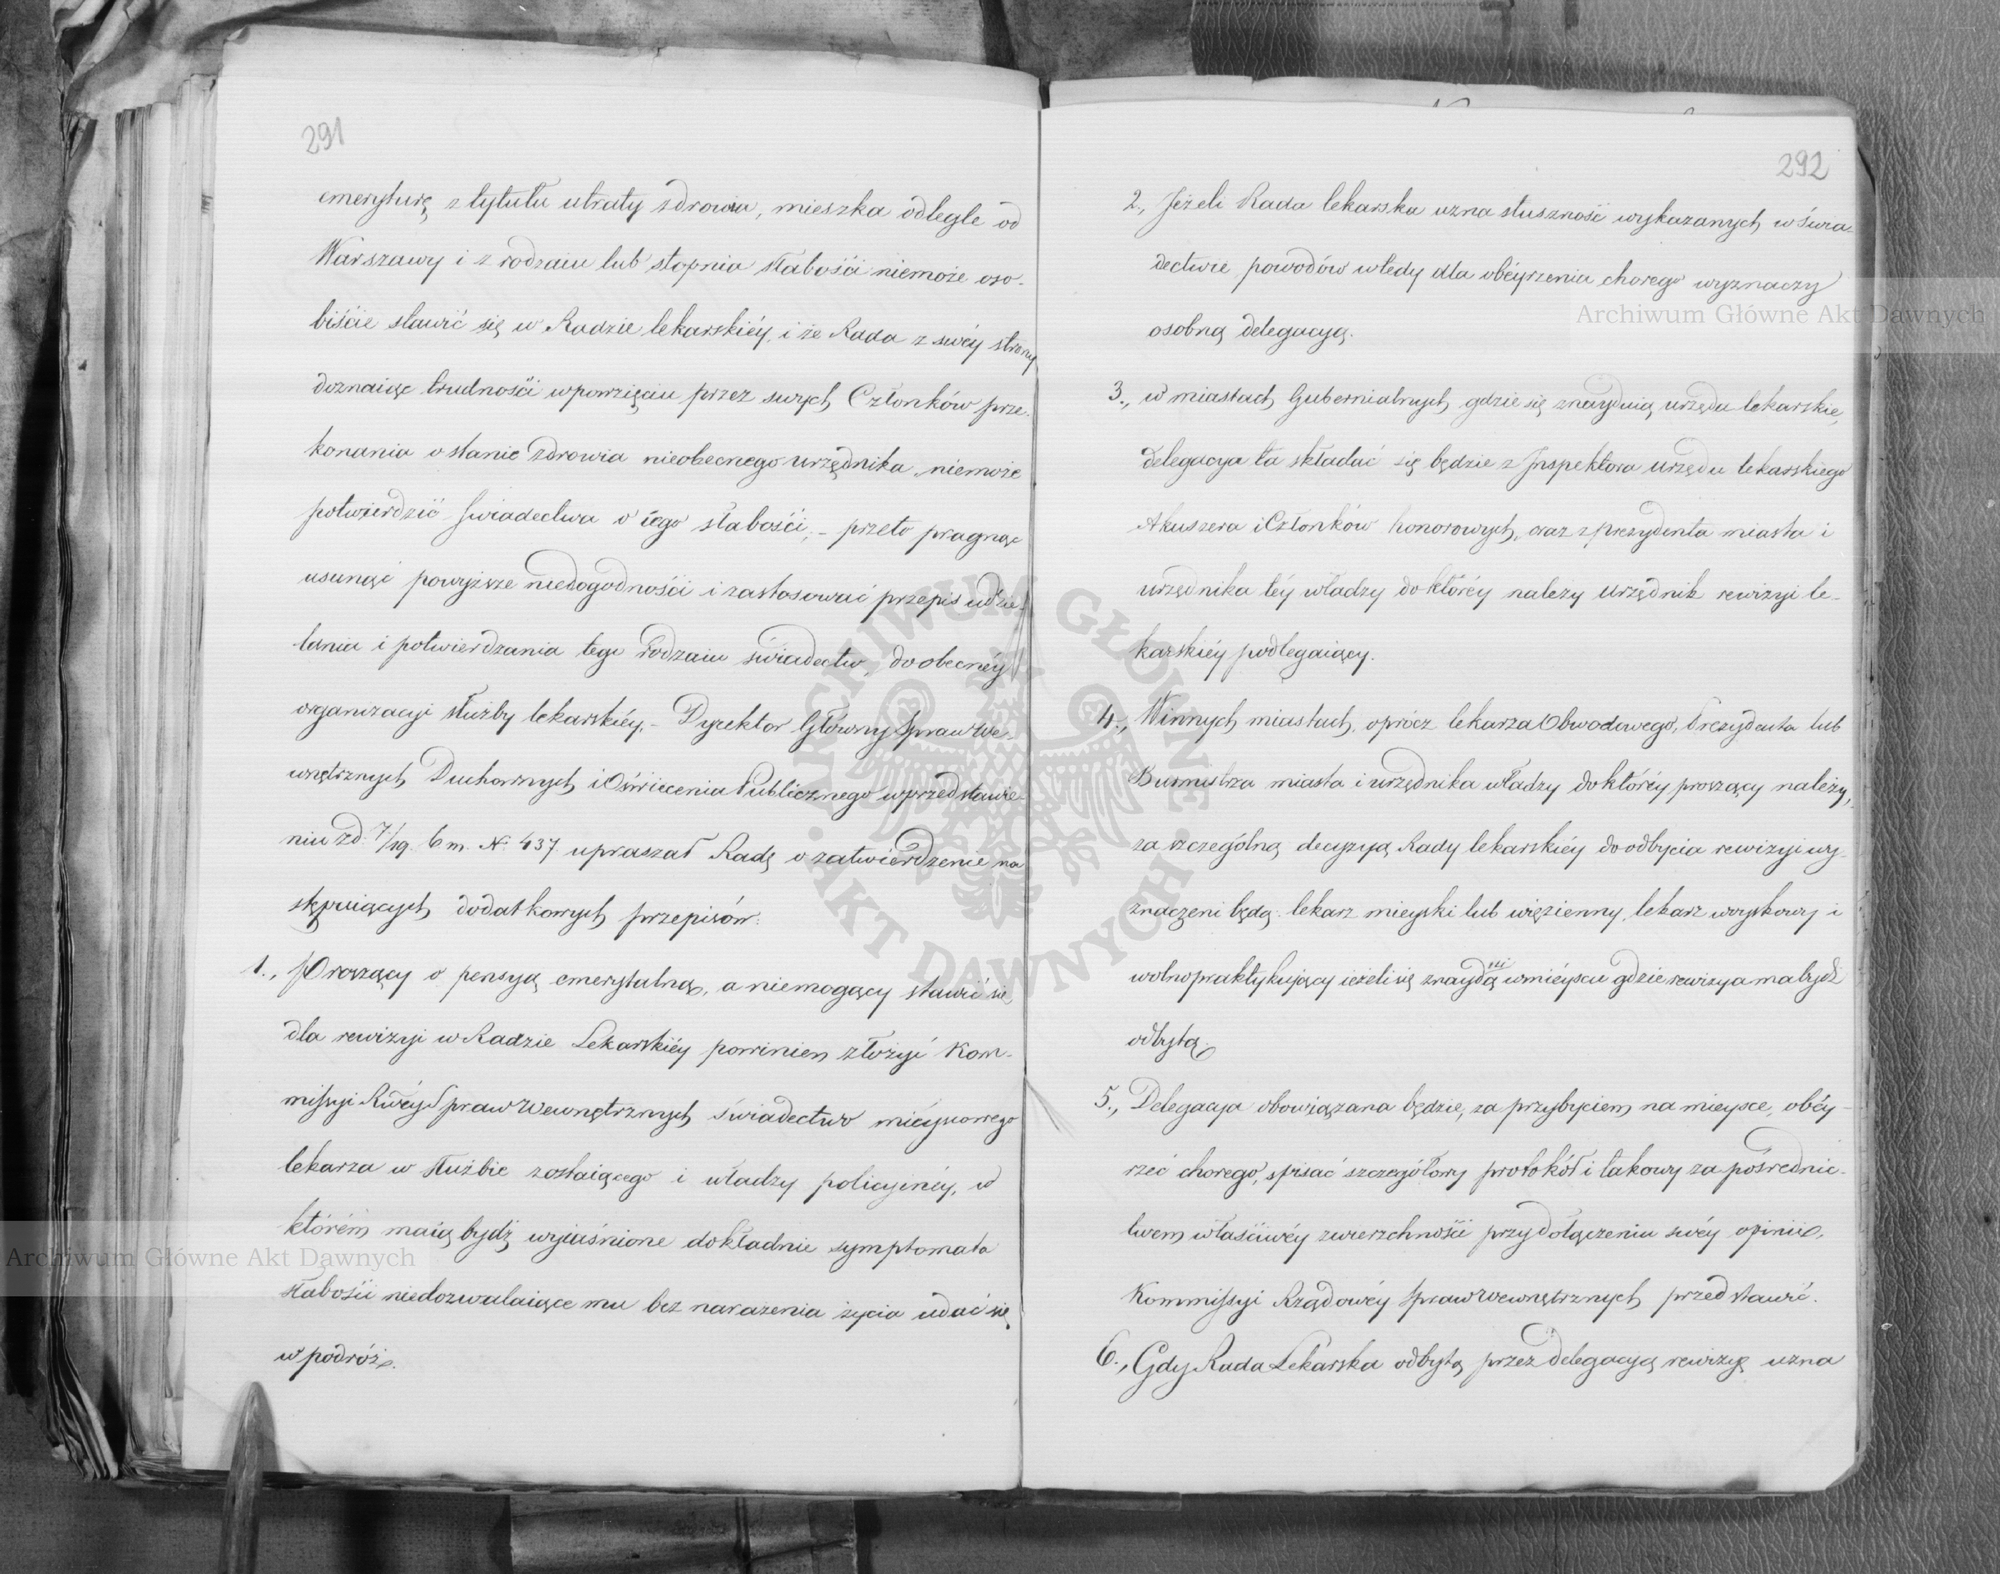 291
emeryturę z tytułu utraty zdrowia, mieszka odlegle od
Warszawy i z rodzaiu lub stopnia słabości niemoże oso-
biście stawić się w Radzie lekarskiéy, i że Rada z swéy strony
doznaiąc trudności w powzięciu przez swych Członków prze-
konania o stanie zdrowia nieobecnego urzędnika, niemoże
potwierdzić świadectwa o iego słabości; - przeto pragnąc
usunąć powyższe niedogodności i zastosować przepis udzie-
lania i potwierdzania tego rodzaiu świadectw, do obecnéy
organizacyi służby lekarskiéy, - Dyrektor Główny Spraw We-
wnętrznych Duchownych i Oświecenia Publicznego w przedstawie-
niu z d. 7/19. b m. N. 437 upraszał Radę o zatwierdzenie na
stępuiących dodatkowych przepisów:
1., Proszący o pensyą emerytalną, a niemogący stawić się
dla rewizyi w Radzie Lekarskiéy powinien złożyć Kom-
missyi Rwéy Spraw Wewnętrznych świadectwo mieyscowego
lekarza w służbie zostaiącego i władzy policyinéy, w
którém maią bydź wyiaśnione dokładnie symptomata
słabości niedozwalaiące mu bez narażenia życia udać się
w podróż.
292
2., Jeżeli Rada lekarska uzna słuszność wykazanych w świa-
dectwie powodów wtedy dla obéyrzenia chorego wyznaczy
osobną delegacyą.
3., w miastach Gubernialnych, gdzie się znayduią urzędu lekarskie,
delegacya ta składać się będzie z Inspektora urzędu lekarskiego
Akuszera i Członków honorowych, oraz z prezydenta miasta i
urzędnika téy władzy do któréy należy urzędnik rewizyi le-
karskiéy podlegaiący.
4., W innych miastach, oprócz lekarza Obwodowego, Prezydenta lub
Burmistrza miasta i urzędnika władzy do któréy proszący należy,
za szczególną decyzyą Rady lekarskiéy do odbycia rewizyi wy-
znaczeni będą: lekarz mieyski lub więzienny, lekarz woyskowy i
wolnopraktykujący ieżeli się znaydą w mieyscu gdzie rewizya ma bydź
odbytą.
5., Delegacya obowiązana będzie, za przybyciem na mieysce, obéy-
rzeć chorego, spisać szczegółowy protokół i takowy za pośrednic-
twem właściwéy zwierzchności przy dołączeniu swéy opinii,
Kommissyi Rządowéy Spraw Wewnętrznych przedstawić.
6., Gdy Rada Lekarska odbytą przez delegacyą rewizyę uzna
Archiwum Główne Akt Dawnych
Archiwum Główne Akt Dawnych
ARCHIWUM GŁÓWNE
AKT DAWNYCH